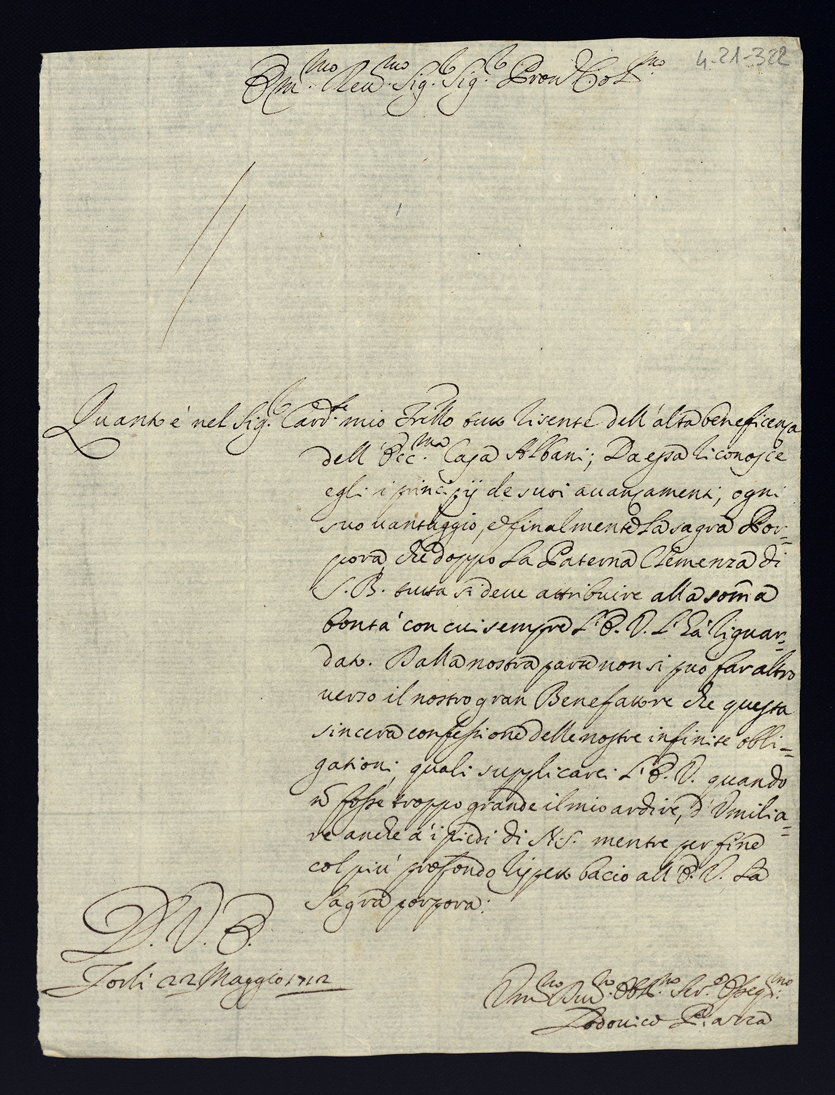 4-21-322
Em.mo Reu.mo Sig.r Sig.r Pron Col.mo
Quanto è nel Sig.r Card.le mio Frłło tutto risente dell'alta beneficenza
dell'Ecc.ma Casa Albani; Da essa riconosce
egli i principij de suoi auanzamenti, ogni
suo uantaggio, e finalmente La sagra Por=
pora, che doppo La Paterna Clemenza di
S. B. tutta si deue attribuire alla som̃a
bontà con cui sempre L'E. V. L'hà riguar=
dato. Dalla nostra parte non si può far altro
uerso il nostro gran Benefattore che questa
sincera confessione delle nostre infinite obbli=
gationi, quali supplicarei L'E. V. quando
ñ fosse troppo grande il mio ardire, d'Vmilia=
re anche à i piedi di N. S. mentre per fine
col più profondo rispetto bacio all'E. V. La
Sagra porpora:
D. V. E.
Forli 22 Maggio 1712
Vm.mo Diu.mo Obb.mo Ser.e Osseq.mo
Lodouico